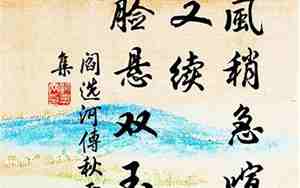 風稍急喧
又续
脸悬双玉
阎选河傳秋
集